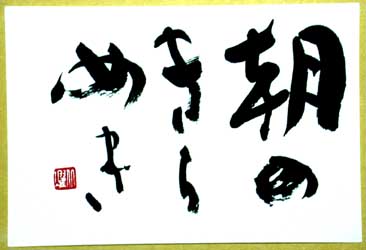 朝の
きら
めき